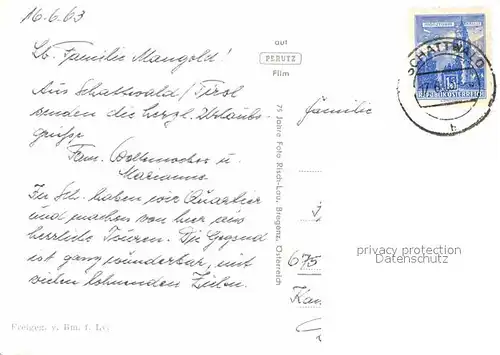 16.6.63
Lb. Familie Mangold!
Aus Schattwald/Tirol
senden die herzl. Urlaubs-
grüße
Fam. u.
Marianne
In Sch. haben wir Quartier
und machen von hier aus
herrliche Touren. Die Gegend
ist ganz wunderbar, mit
vielen lohnenden Zielen.
Freigeg. v. Bm. f. Lv.
auf
PERUTZ
Film
75 Jahre Foto Risch-Lau, Bregenz, Österreich
SCHATTWALD
REPUBLIK ÖSTERREICH
b
Familie
675
privacy protection
Datenschutz